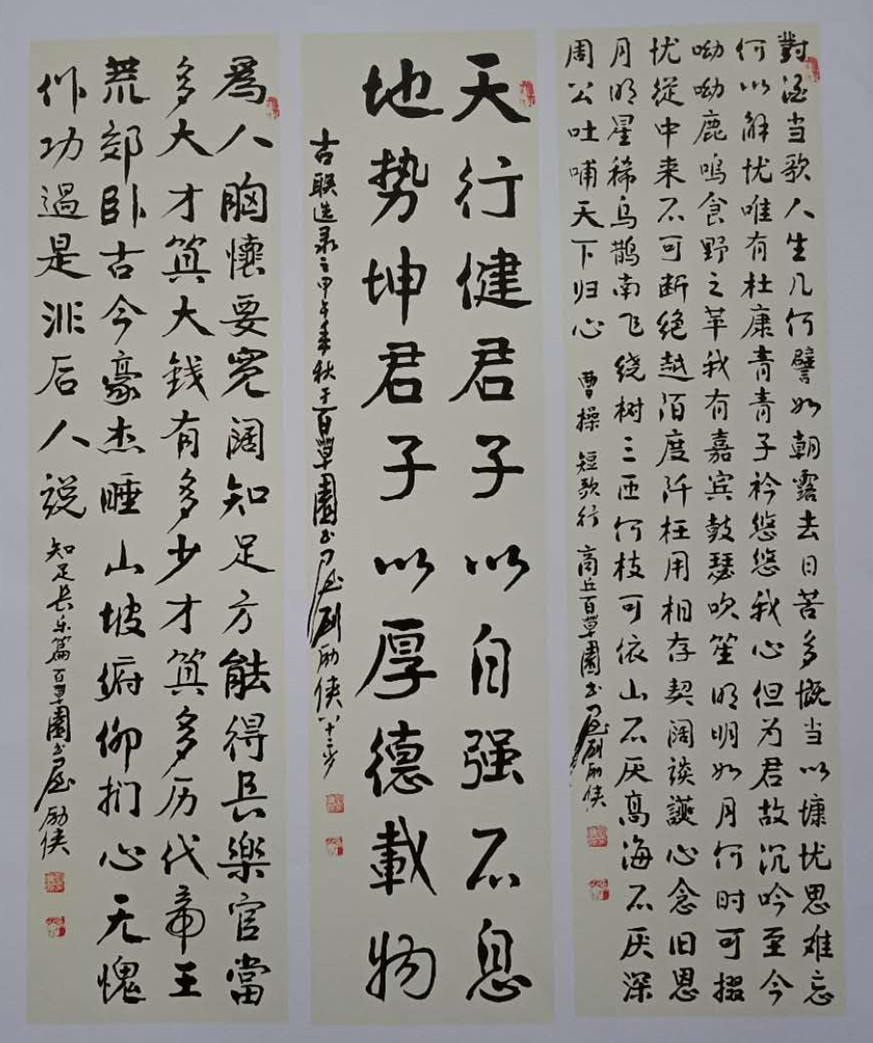 對酒当歌人生几何譬如朝露去日苦多慨当以慷忧思难忘
何以解忧唯有杜康青青子衿悠悠我心但为君故沉吟至今
呦呦鹿鸣食野之苹我有嘉宾鼓瑟吹笙明明如月何时可掇
忧從中来不可断绝越陌度阡枉用相存契阔谈讌心念旧恩
月明星稀乌鹊南飞绕树三匝何枝可依山不厌高海不厌深
周公吐哺天下归心 曹操 短歌行 商丘百草園书屋刘励侠
天行健君子以自强不息
地势坤君子以厚德載物
古联选录之甲午年秋于百草園书屋刘励侠八十三岁
為人胸懷要寬阔知足方能得長樂官當
多大才算大钱有多少才算多历代帝王
荒郊卧古今豪杰睡山坡俯仰扪心无愧
作功過是非后人说 知足長乐篇百草園书屋励侠